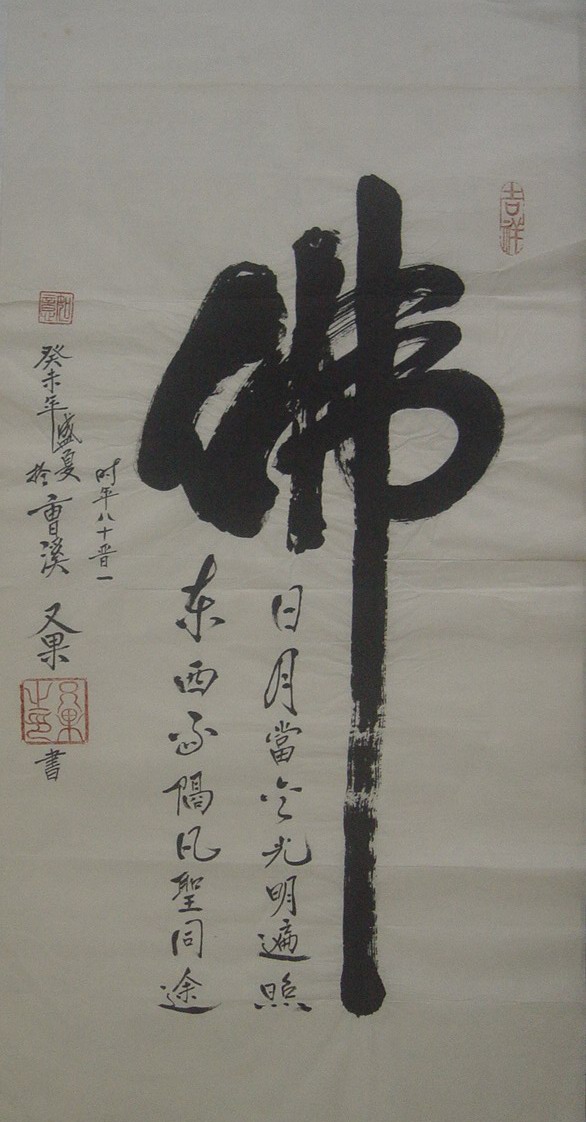 吉祥
佛
日月當空光明遍照
东西隔凡聖同途
时年八十晋一
如意
癸未年盛夏於曹溪 又果 書
又果之印